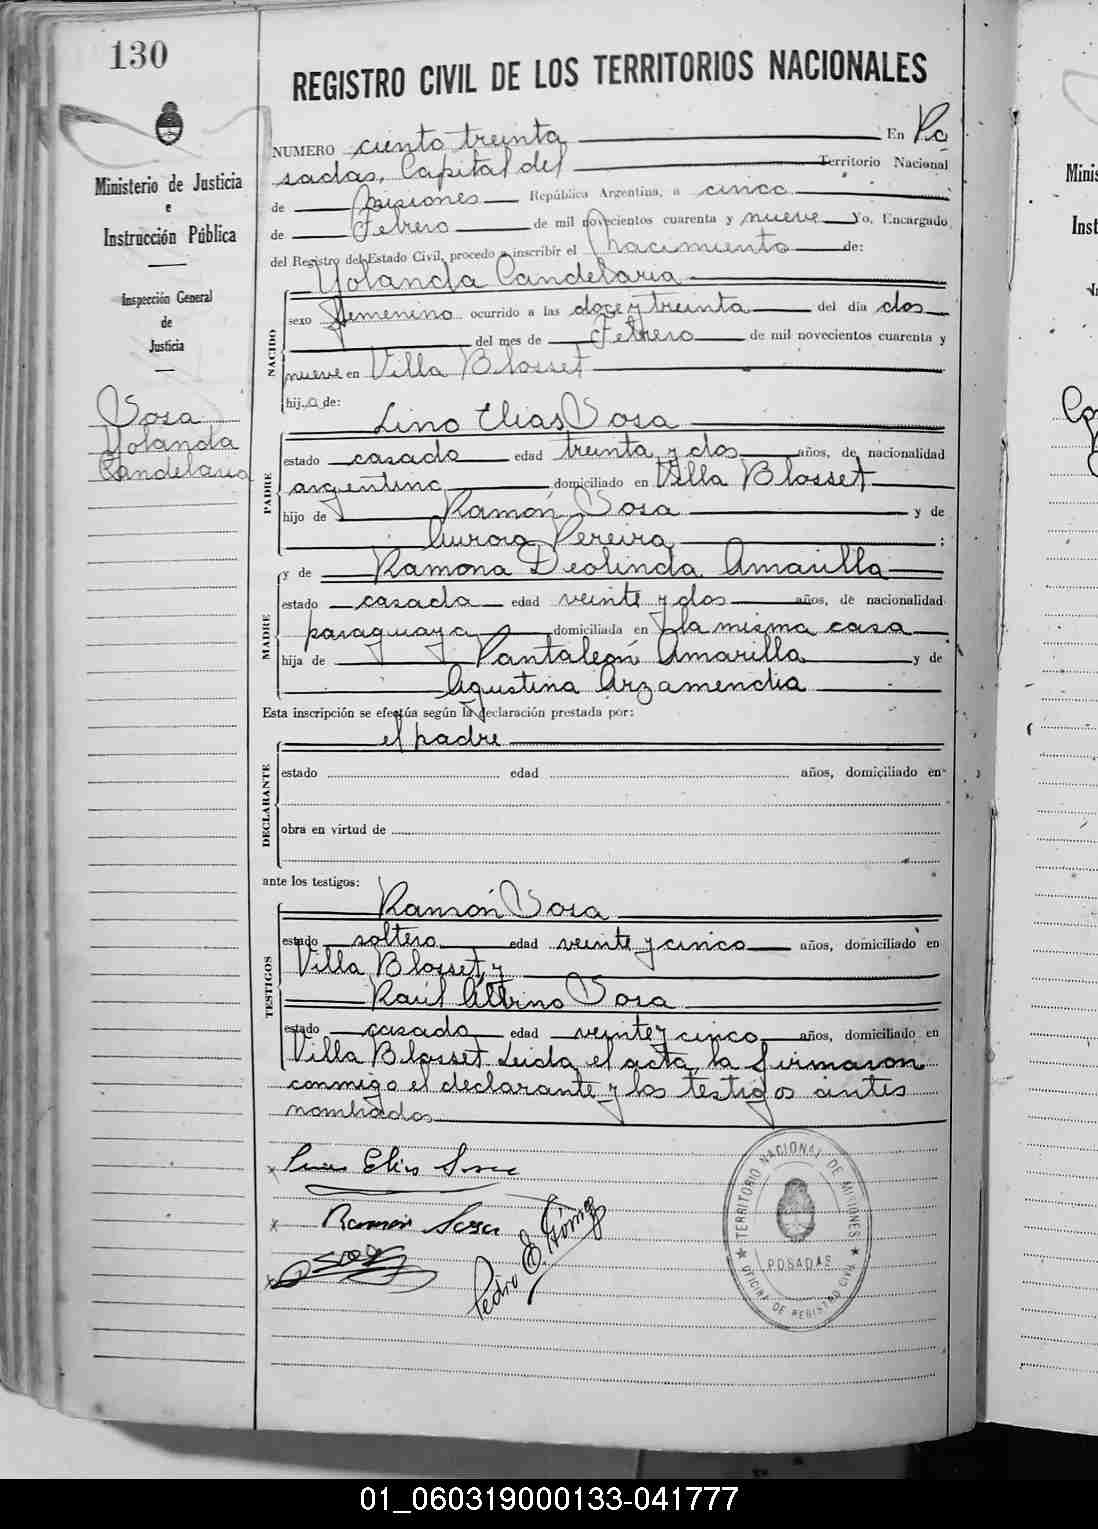 130
Ministerio de Justicia
e
Instrucción Pública
Inspección General
de
Justicia
Sosa
Yolanda
Candelaria
REGISTRO CIVIL DE LOS TERRITORIOS NACIONALES
NUMERO ciento treinta En Po
sadas, Capital del Territorio Nacional
de Misiones República Argentina, a cinco
de Febrero de mil novecientos cuarenta y nueve Yo, Encargado
del Registro del Estado Civil, procedo a inscribir el nacimiento de:
Yolanda Candelaria
NACIDO
sexo femenino ocurrido a las doce y treinta del día dos
del mes de Febrero de mil novecientos cuarenta y
nueve en Villa Blosset
hija de:
PADRE
Lino Elias Sosa
estado casado edad treinta y dos años, de nacionalidad
argentino domiciliado en Villa Blosset
hijo de Ramón Sosa y de
Aurora Pereira ;
MADRE
y de Ramona Deolinda Amarilla
estado casada edad veinte y dos años, de nacionalidad
paraguaya domiciliada en la misma casa
hija de Pantaleón Amarilla y de
Agustina Arzamendia
Esta inscripción se efectúa según la declaración prestada por:
DECLARANTE
el padre
estado edad años, domiciliado en
obra en virtud de
ante los testigos:
TESTIGOS
Ramón Sosa
estado soltero edad veinte y cinco años, domiciliado en
Villa Blosset, y
Raúl Albino Sosa
estado casado edad veinte y cinco años, domiciliado en
Villa Blosset. Leida el acta, la firmaron
conmigo el declarante y los testigos antes
nombrados
x Lino Elias Sosa
x Ramón Sosa
x
Pedro E. Gómez
TERRITORIO NACIONAL DE MISIONES
POSADAS
OFICINA DE REGISTRO CIVIL
Minis
Inst
01_060319000133-041777